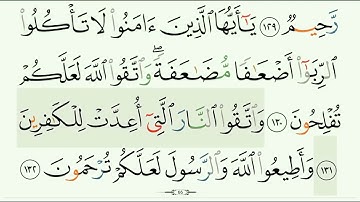 رَّحِيمٌ ١٢٩ يَٰٓأَيُّهَا ٱلَّذِينَ ءَامَنُوا۟ لَا تَأْكُلُوا۟
ٱلرِّبَوٰٓا۟ أَضْعَٰفًا مُّضَٰعَفَةً ۖ وَٱتَّقُوا۟ ٱللَّهَ لَعَلَّكُمْ
تُفْلِحُونَ ١٣٠ وَٱتَّقُوا۟ ٱلنَّارَ ٱلَّتِىٓ أُعِدَّتْ لِلْكَٰفِرِينَ
١٣١ وَأَطِيعُوا۟ ٱللَّهَ وَٱلرَّسُولَ لَعَلَّكُمْ تُرْحَمُونَ ١٣٢